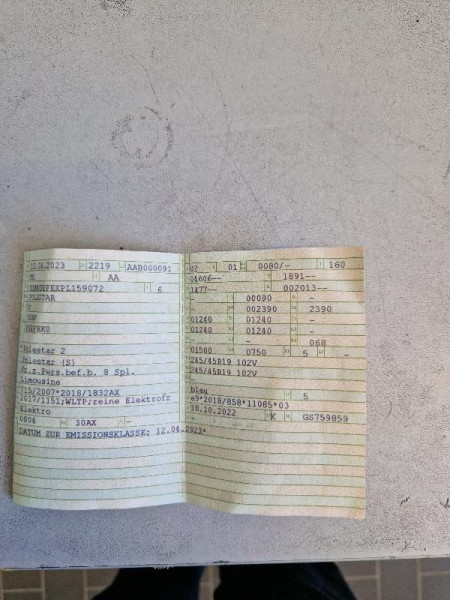 12.04.2023 2219 AAB000091
M1 AA
6
POLSTAR
Polestar 2
Polestar (S)
Fz.z.Pers.bef.b. 8 Spl.
Limousine
715/2007*2018/1832AX
2017/1151;WLTP;reine Elektrofz
Elektro
0004 30AX -
DATUM ZUR EMISSIONSKLASSE: 12.04.2023*
02 01 0080/- 160
04606-- 1891--
1477-- 002013--
- 00090 -
- 002390 2390
01240 01240 -
01240 01240 -
- 068
01500 0750 5 -
245/45R19 102V
245/45R19 102V
-
blau 5
e9*2018/858*11085*03
18.10.2022 K GS759859